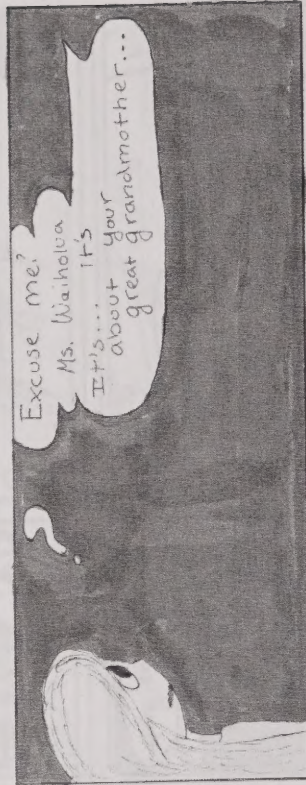 ?
Excuse me?
Ms. Waiholua
It's... it's
about your
great grandmother...